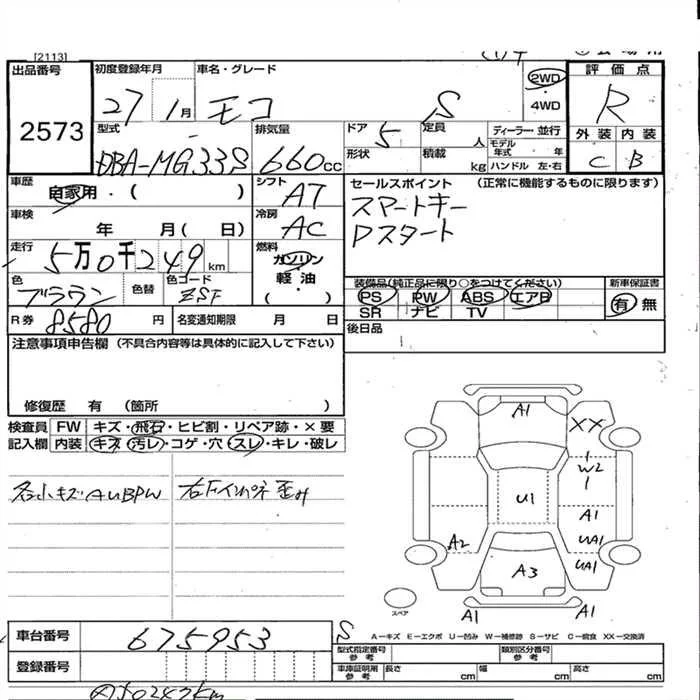 [2113]
出品番号 初度登録年月 車名・グレード 2WD 評価点
2573 27 1月 モコ S ・4WD R
型式 排気量 ドア 定員 ディーラー・並行 外装 内装
DBA-MG33S 660cc 5 人 モデル年式 ・ 年 C B
形状 積載 kg ハンドル 左・右
車歴 自家用・( ) シフト AT セールスポイント (正常に機能するものに限ります)
車検 年 月( 日) 冷房 AC スマートキー
走行 5万0千249km 燃料 ガソリン Pスタート
色 ブラウン 色替 色コード ZSF 軽油 ( )
装備品(純正品に限り○をつけてください) 新車保証書
PS PW ABS エアB 有・無
SR ナビ TV
R券 8580円 名変通知期限 月 日 後日品
注意事項申告欄 (不具合内容等は具体的に記入して下さい)
修復歴 有 (箇所 )
検査員 FW キズ・飛石・ヒビ割・リペア跡・×要
記入欄 内装 キズ・汚レ・コゲ・穴・スレ・キレ・破レ
各小キズAUBPW 右下インパネ歪み
A1
XX
W2
U1
A1
UA1
A2
UA1
A3
スペア
A1
A1
A−キズ E−エクボ U−凹み W−補修跡 S−サビ C−腐食 XX−交換済
車台番号 675953 S
登録番号
型式指定番号 参考 類別区分番号 参考
車庫証明用 参考 長さ cm 幅 cm 高さ cm